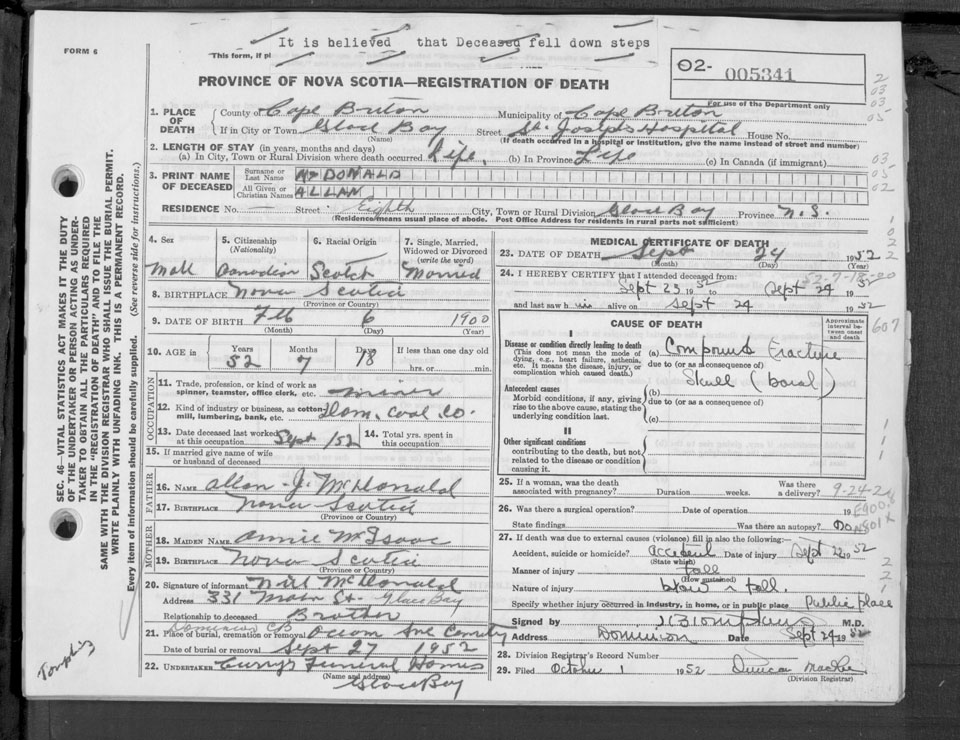 It is believed that Deceased fell down steps
FORM 6
This form, if pl
O2- 005341
For use of the Department only
PROVINCE OF NOVA SCOTIA—REGISTRATION OF DEATH
1. PLACE OF DEATH County of Cape Breton Municipality of Cape Breton
If in City or Town Glace Bay Street St. Joseph's Hospital House No.
(Name) (If death occurred in a hospital or institution, give the name instead of street and number)
2. LENGTH OF STAY (in years, months and days)
(a) In City, Town or Rural Division where death occurred Life. (b) In Province Life (c) In Canada (if immigrant)
3. PRINT NAME OF DECEASED Surname or Last Name McDONALD
All Given or Christian Names ALLAN
RESIDENCE No. — Street Eighth City, Town or Rural Division Glace Bay Province N.S.
(Residence means usual place of abode. Post Office Address for residents in rural parts not sufficient)
4. Sex 5. Citizenship (Nationality) 6. Racial Origin 7. Single, Married, Widowed or Divorced (write the word)
Male Canadian Scotch Married
8. BIRTHPLACE Nova Scotia
(Province or Country)
9. DATE OF BIRTH Feb 6 1900
(Month) (Day) (Year)
10. AGE in Years Months Days If less than one day old
52 7 18 hrs. or min.
OCCUPATION
11. Trade, profession, or kind of work as spinner, teamster, office clerk, etc. miner
12. Kind of industry or business, as cotton mill, lumbering, bank, etc. Dom. Coal Co.
13. Date deceased last worked at this occupation Sept 1 52 14. Total yrs. spent in this occupation
15. If married give name of wife or husband of deceased
FATHER
16. NAME Allan J. McDonald
17. BIRTHPLACE Nova Scotia
(Province or Country)
MOTHER
18. MAIDEN NAME Annie McIsaac
19. BIRTHPLACE Nova Scotia
(Province or Country)
20. Signature of informant Neil McDonald
Address 331 Main St. Glace Bay
Relationship to deceased Brother
Dominion CB
21. Place of burial, cremation or removal Ocean Ave Cemetery
Date of burial or removal Sept 27 1952
22. UNDERTAKER Curry's Funeral Homes
(Name and address)
Glace Bay
MEDICAL CERTIFICATE OF DEATH
23. DATE OF DEATH Sept 24 1952
(Month) (Day) (Year)
24. I HEREBY CERTIFY that I attended deceased from:
52-7-18-00
Sept 23 1952 to Sept 24 1952
and last saw him alive on Sept 24 1952
607
CAUSE OF DEATH
Approximate interval between onset and death
I
Disease or condition directly leading to death
(This does not mean the mode of dying, e.g., heart failure, asthenia, etc. It means the disease, injury, or complication which caused death.)
(a) Compound Fracture
due to (or as a consequence of)
Skull (basal)
Antecedent causes
Morbid conditions, if any, giving rise to the above cause, stating the underlying condition last.
(b)
due to (or as a consequence of)
(c)
II
Other significant conditions
contributing to the death, but not related to the disease or condition causing it.
25. If a woman, was the death associated with pregnancy? Duration weeks. Was there a delivery?
26. Was there a surgical operation? Date of operation 19
State findings Was there an autopsy? No
E900.
N801X
27. If death was due to external causes (violence) fill in also the following:
Accident, suicide or homicide? accident Date of injury Sept 22 1952
(State which)
Manner of injury fall
(How sustained)
Nature of injury blow & fall.
Specify whether injury occurred in industry, in home, or in public place Public place
Signed by M.D.
Address Dominion Date Sept 24 1952
28. Division Registrar's Record Number
29. Filed October 1 1952 Duncan MacRae
(Division Registrar)
SEC. 46—VITAL STATISTICS ACT MAKES IT THE DUTY
OF THE UNDERTAKER OR PERSON ACTING AS UNDER-
TAKER TO OBTAIN ALL THE PARTICULARS REQUIRED
IN THE "REGISTRATION OF DEATH" AND TO FILE THE
SAME WITH THE DIVISION REGISTRAR WHO SHALL ISSUE THE BURIAL PERMIT.
WRITE PLAINLY WITH UNFADING INK. THIS IS A PERMANENT RECORD.
Every item of information should be carefully supplied. (See reverse side for instructions.)